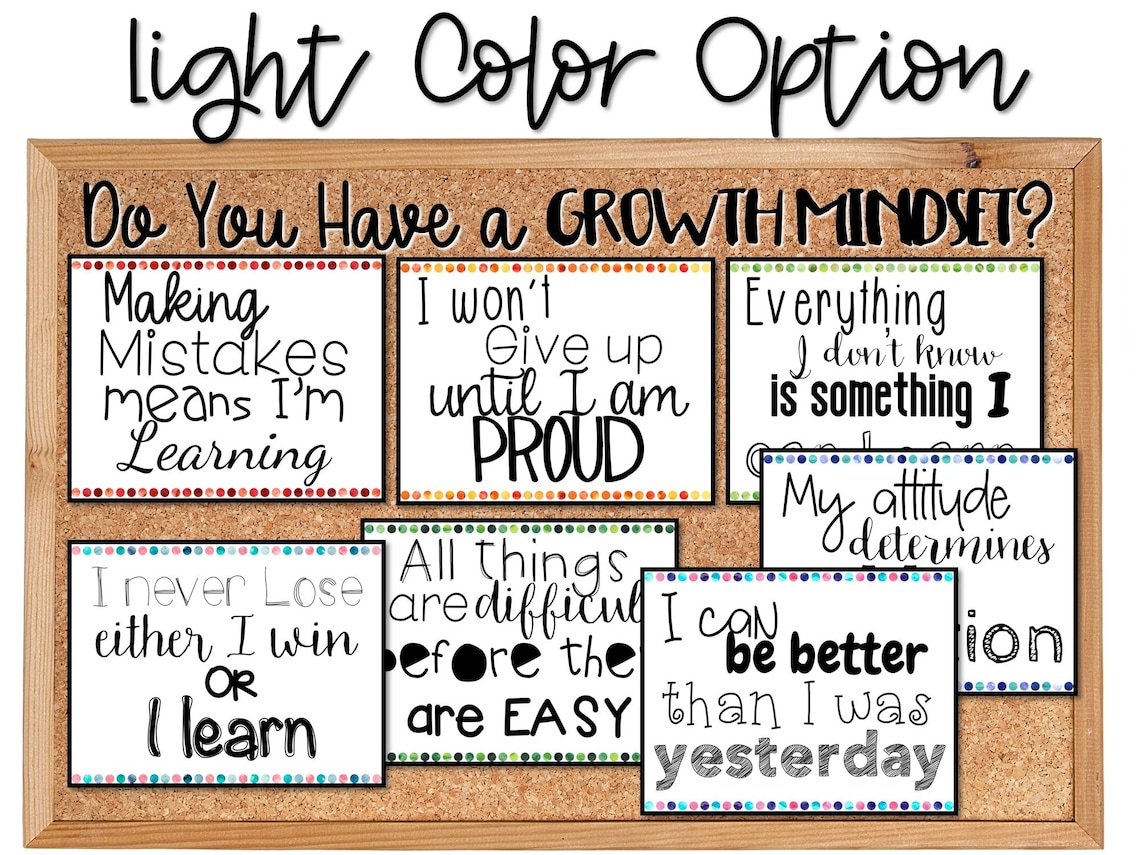 light Color Option
Do You Have a GROWTH MINDSET?
Making
Mistakes
means I'm
Learning
I won't
Give up
until I am
PROUD
Everything
I don't know
is something I
My attitude
determines
I never Lose
either I win
OR
I learn
All things
are
before
are EASY
I can
be better
than I was
yesterday